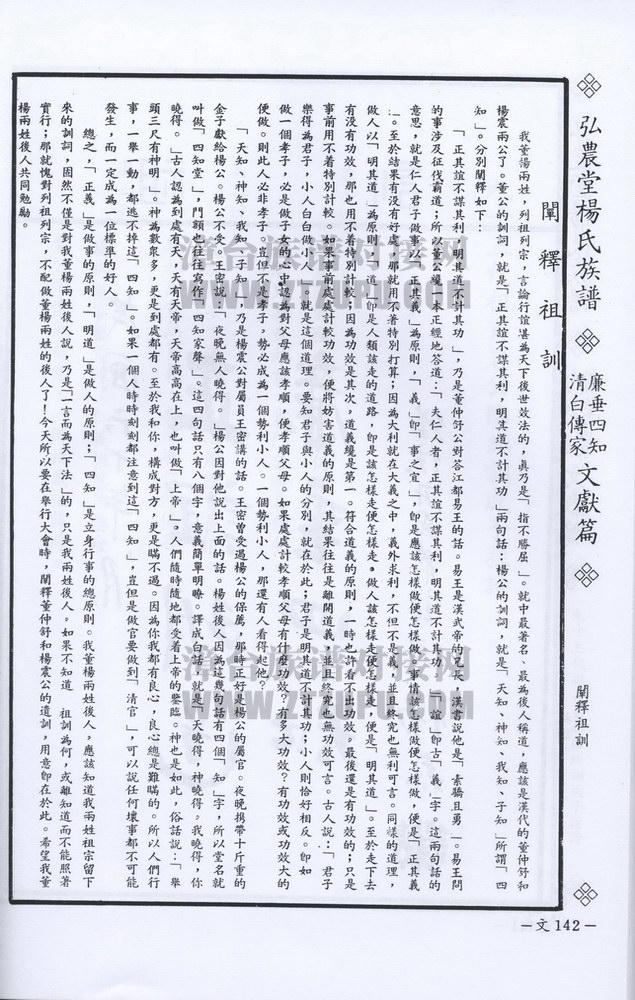 弘農堂楊氏族譜
廉垂四知
清白傳家
文獻篇
闡釋祖訓
闡釋祖訓
我董楊兩姓,列祖列宗,言論行誼堪為天下後世效法的,眞乃是「指不勝屈」。就中最著名、最為後人稱道,應該是漢代的董仲舒和
楊震兩公了。董公的訓詞,就是「正其誼不謀其利,明其道不計其功」兩句話;楊公的訓詞,就是「天知、神知、我知、子知」所謂「四
知」。分別闡釋如下:
「正其誼不謀其利,明其道不計其功」,乃是董仲舒公對答江都易王的話。易王是漢武帝的兄長,漢書說他是「素驕且勇」。易王問
的事涉及征伐霸道;所以董公便一本正經地答道:「夫仁人者,正其誼不謀其利,明其道不計其功」。「誼」即古「義」字。這兩句話的
意思,就是仁人君子做事以「正其義」為原則,「義」即「事之宜」,即是應該怎樣做便怎樣做,事情該怎樣做便怎樣做,便是「正其義
」。至於結果有沒有好處,那就用不着特別打算;因為大利就在大義之中,義外求利,不但不是義,並且終究也無利可言。同樣的道理,
做人以「明其道」為原則,「道」即是人類該走的道路,即是該怎樣走便怎樣走。做人該怎樣走便怎樣走,便是「明其道」。至於走下去
有沒有功效,那也用不着特別計較;因為功效是其次,道義纔是第一。符合道義的原則,一時也許看不出功效。最後還是有功效的;只是
事前用不着特別計較。如果事前處處計較功效,便將妨害道義的原則,其結果往往是離開道義,並且終究也無功效可言。古人說:「君子
樂得為君子,小人白白做小人」。就是這個道理。要知君子與小人的分別,就在於此;君子是明其道不計其功;小人則恰好相反。即如
做一個孝子,必是做子女的心中認為對父母應該孝順,便孝順父母。如果處處計較孝順父母有什麼功效?有多大功效?有功效或功效大的
便做。則此人必非孝子。豈但不是孝子,勢必成為一個勢利小人。一個勢利小人,那還有人看得起他?
「天知、神知、我知、子知」,乃是楊震公對屬員王密講的話。王密曾受過楊公的保薦,那時正好是楊公的屬官。夜晚携帶十斤重的
金子獻給楊公。楊公不受。王密說:「夜晚無人曉得。」楊公因對他說出上面的話。楊姓後人因為這幾句話有四個「知」字,所以堂名就
叫做「四知堂」,門額也往往寫作「四知家聲」。這四句話只有八個字,意義簡單明瞭。譯成白話,就是「天曉得,神曉得,我曉得,你
曉得。」古人認為到處有天,天有天帝,天帝高高在上,也叫做「上帝」。人們隨時隨地都受着上帝的鑒臨。神也是如此,俗話說:「舉
頭三尺有神明」。神為數衆多,更是到處都有。至於我和你,構成對方,更是瞞不過。因為你我都有良心,良心總是難瞞的。所以人們行
事,一舉一動,都逃不掉這「四知」。如果一個人時時刻刻都注意到這「四知」,豈但是做官要做到「清官」,可以說任何壞事都不可能
發生,而一定成為一位標準的好人。
總之,「正義」是做事的原則,「明道」是做人的原則;「四知」是立身行事的總原則。我董楊兩姓後人,應該知道我兩姓祖宗留下
來的訓詞,固然不僅是對我董楊兩姓後人說,乃是「一言而為天下法」的,只是我兩姓後人。如果不知道 祖訓為何,或雖知道而不能照著
實行;那就愧對列祖列宗,不配做董楊兩姓的後人了!今天所以要在舉行大會時,闡釋董仲舒和楊震公的遺訓,用意即在於此。希望我董
楊兩姓後人共同勉勵。
—文 142—